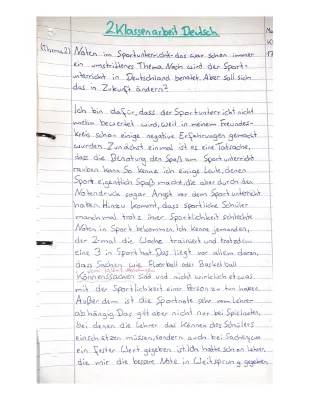 2. Klassenarbeit Deutsch
(Thema 2) Noten im Sportunterricht - das war schon immer
ein umstrittenes Thema. Noch wird der Sport-
unterricht in Deutschland benotet. Aber soll sich
das in Zukunft ändern?
Ich bin dafür, dass der Sportunterricht nicht
mehr bewertet wird, weil in meinem Freundes-
kreis schon einige negative Erfahrungen gemacht
wurden. Zunächst einmal ist es eine Tatsache,
dass die Benotung den Spaß am Sportunterricht
rauben kann. So kenne ich einige Leute, denen
Sport eigentlich Spaß macht, die aber durch den
Notendruck sogar Angst vor dem Sportunterricht
haben. Hinzu kommt, dass sportliche Schüler
manchmal trotz ihrer Sportlichkeit schlechte
Noten in Sport bekommen. Ich kenne jemanden,
der 2-mal die Woche trainiert und trotzdem
eine 3 in Sport hat. Das liegt vor allem daran,
dass Sachen wie Floorball oder Basketball
Könnenssachen sind und nicht wirklich etwas
mit der Sportlichkeit einer Person zu tun haben.
Außerdem ist die Sportnote sehr vom Lehrer
abhängig. Das gilt aber nicht nur bei Spielarten,
bei denen die Lehrer das Können des Schülers
einschätzen müssen, sondern auch bei Sachen, wo
ein fester Wert gegeben ist. Ich hatte schon Lehrer,
die mir die bessere Note in Weitsprung gegeben